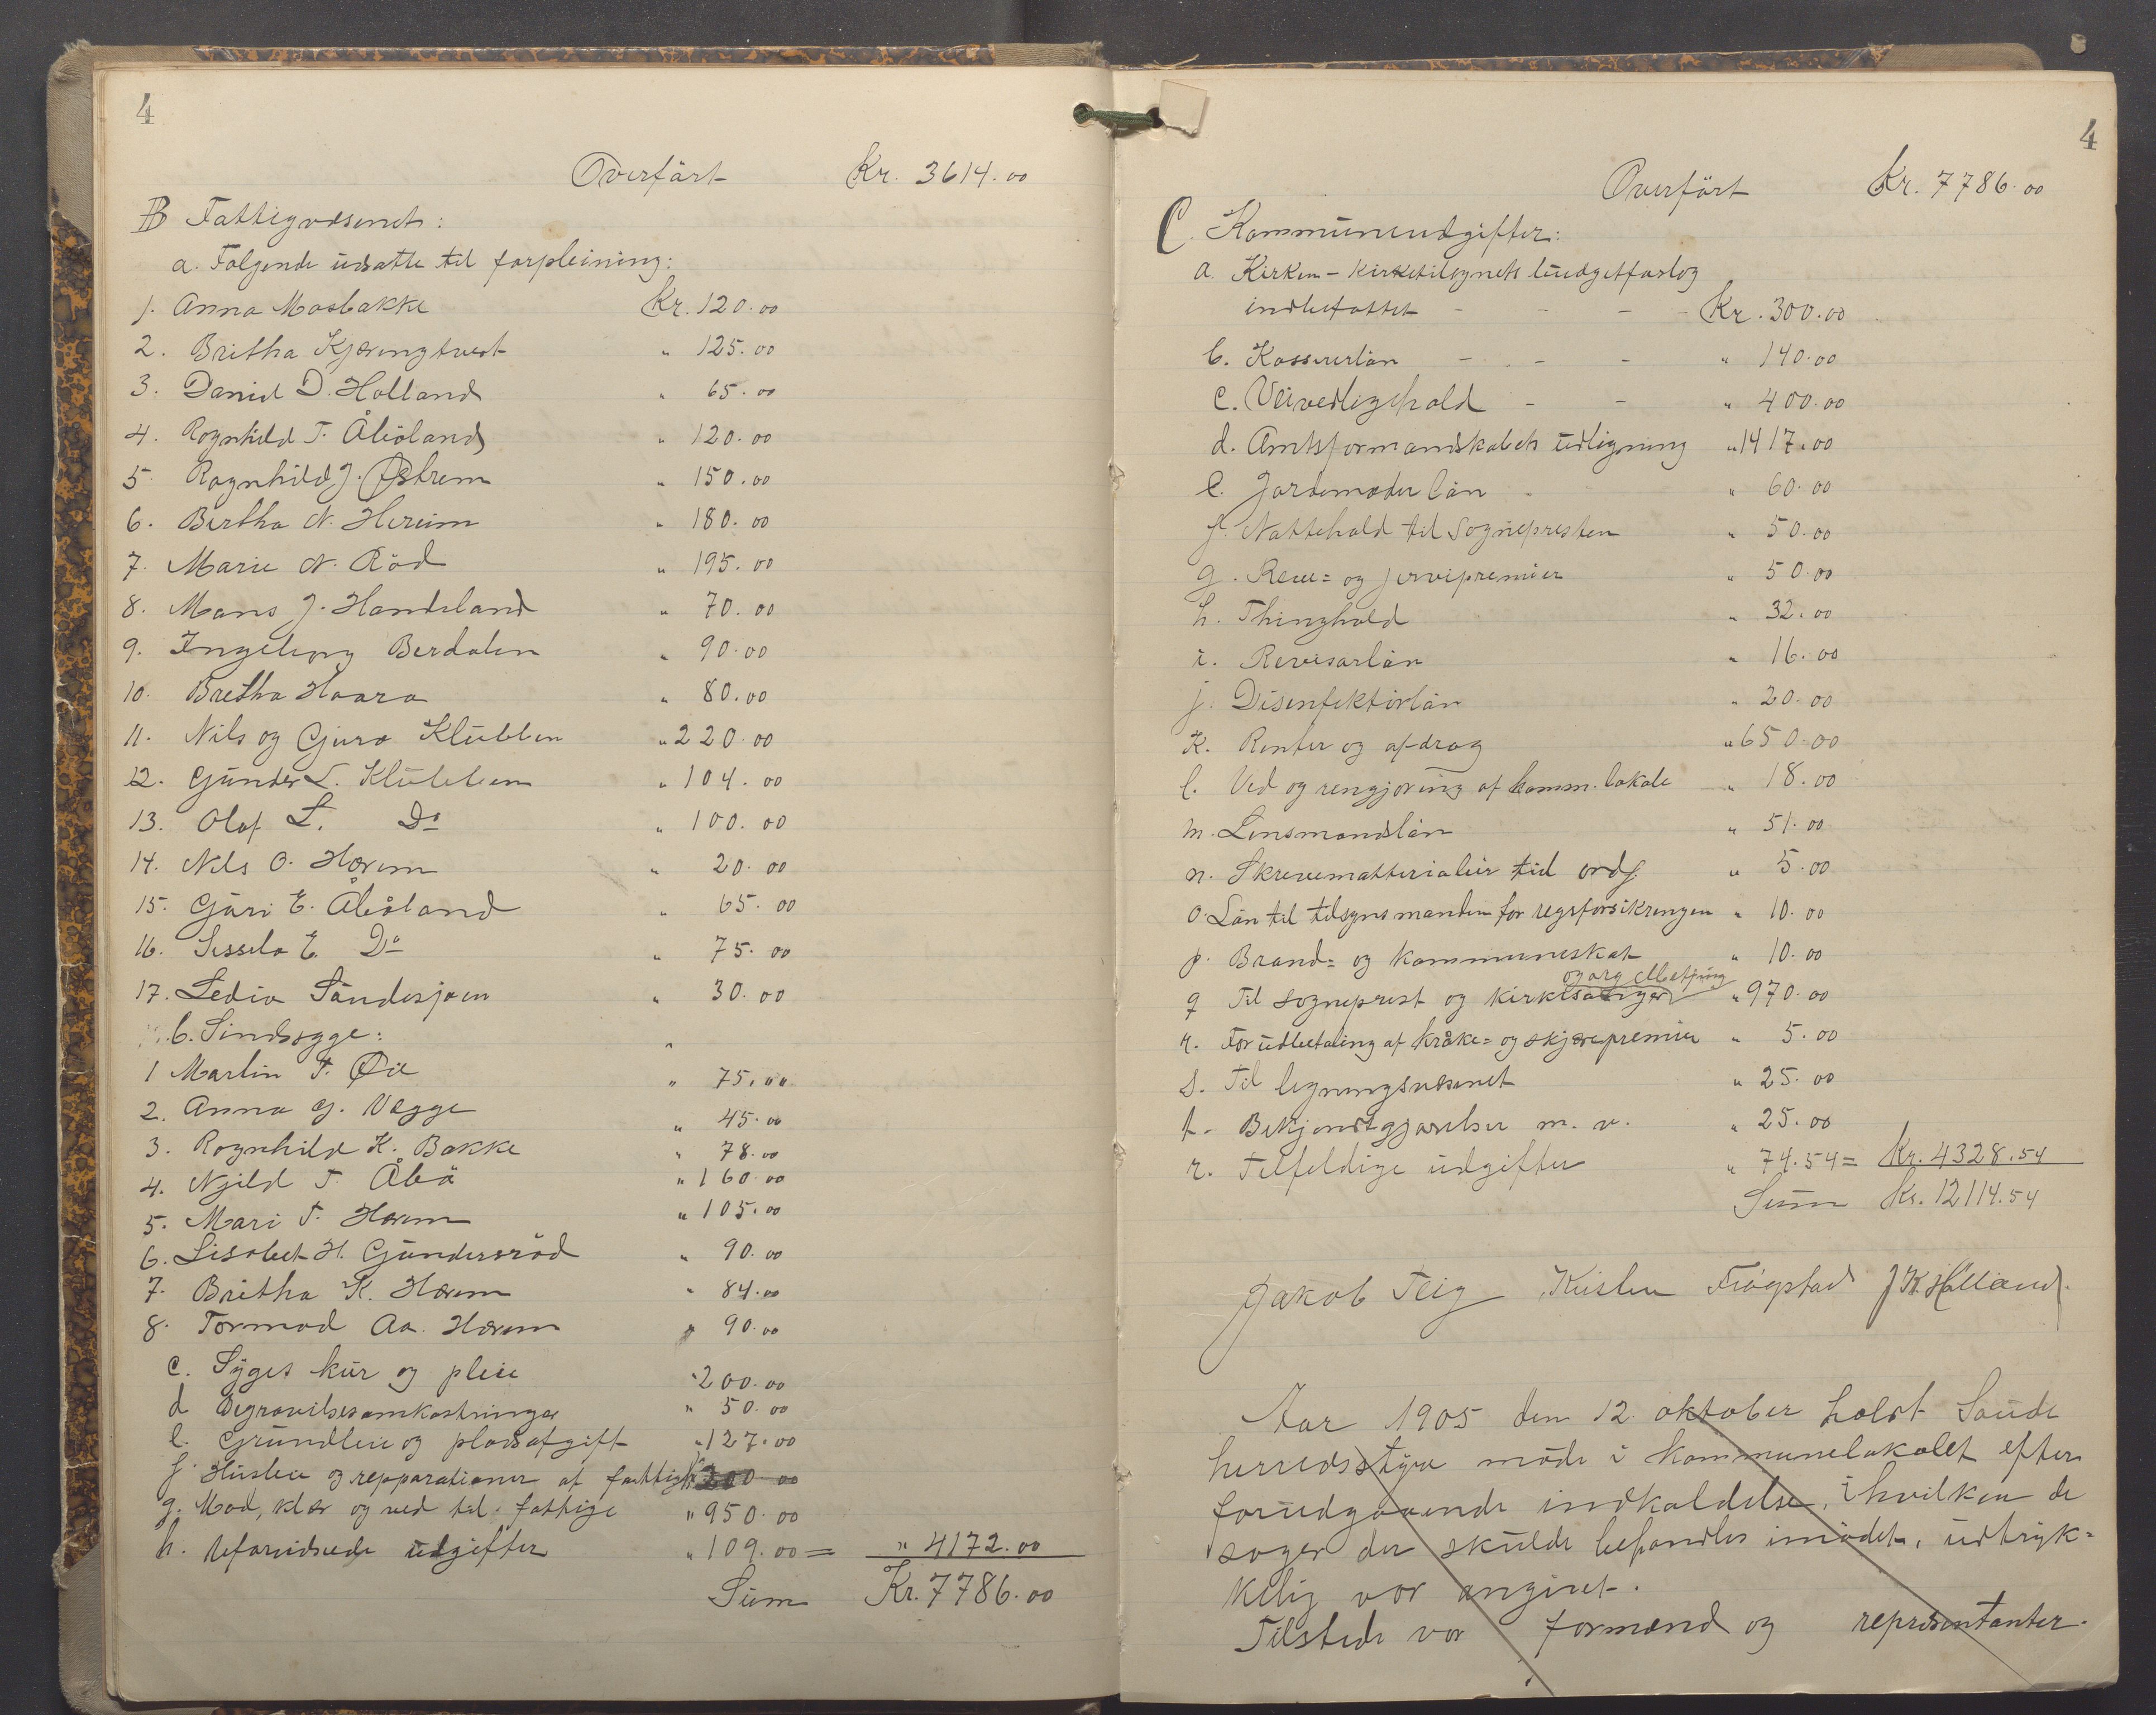 4
Overført Kr. 3614.00
B Fattigvæsenet:
a. Følgende udsatte til forpleining:
1. Anna Mosbakke Kr. 120.00
2. Britha Kjæringtveit " 125.00
3. Daniel D. Holland " 65.00
4. Ragnhild T. Åbøland " 120.00
5 Ragnhild J. Østrem " 150.00
6. Bertha N. Hereim " 180.00
7. Marie N. Röd " 195.00
8. Mons J. Handeland " 70.00
9. Ingeborg Berdalen " 90.00
10. Bretha Haara " 80.00
11. Nils og Guro Klubben " 220.00
12. Gunder L. Klubben " 104.00
13. Olaf L. Do " 100.00
14. Nils O. Hærem " 20.00
15. Guri E. Åbøland " 65.00
16. Sissela E. Do " 75.00
17. Ledia Sandesjøen " 30.00
b. Sindsyge:
1 Martin T. Øie " 75.00
2. Anna G. Vegge " 45.00
3. Ragnhild K. Bakke " 78.00
4. Njild T. Åbø " 160.00
5. Mari T. Hærem " 105.00
6. Lisabet H. Gundersröd " 90.00
7. Britha K. Hærem " 84.00
8. Tormod Aa. Hærem " 90.00
c. Syges kur og pleie " 200.00
d Begravelsesomkostninger " 50.00
e. Grundleie og pladsafgift " 127.00
f Husleie og repparationer af fattigh. 200 00
g. Mad, klær og ved til fattige " 950.00
h. Uforudseede udgifter " 109.00 = " 4172.00
Sum Kr. 7786.00
4
Overført Kr. 7786.00
C. Kommuneudgifter:
a. Kirken - kirketilsynets budgetforslag
indbefattet - - - - Kr. 300.00
b. Kassererløn - - - " 140.00
c. Veivedligehold - - " 400.00
d. Amtsformandskabets udligning " 1417.00
e. Jordemoderløn " 60.00
f. Nattehold til sognepresten " 50.00
g. Reve= og jervepremier " 50.00
h. Thinghold " 32.00
i. Revisorløn " 16.00
j. Disenfektörløn " 20.00
k. Renter og afdrag " 650.00
l. Ved og rengjøring af komm. lokale " 18.00
m. Lensmandsløn " 51.00
n. Skrivematterialier til ordf " 5.00
o. Løn til tilsynsmanden for rigsforsikringen " 10.00
p. Brand= og kommuneskat " 10.00
og org
q Til sogneprest og kirkesanger " 970.00
r. For udbetaling af kråke= og skjærepremier " 5.00
s. Til ligningsvæsenet " 25.00
t. Bekjendtgjørelser m. v. " 25.00
r. Tilfeldige udgifter " 74.54 = Kr. 4328.54
Sum Kr. 12114.54
Jakob Teig Kristen Frøgstad J K Holland.
Aar 1905 den 12. oktober holdt Saude
herredsstyre møde i kommunelokalet efter
forudgaaende indkaldelse, i hvilken de
sager der skulde behandles i mødet, udtryk=
kelig var angivet.
Tilstede var formænd og representanter.